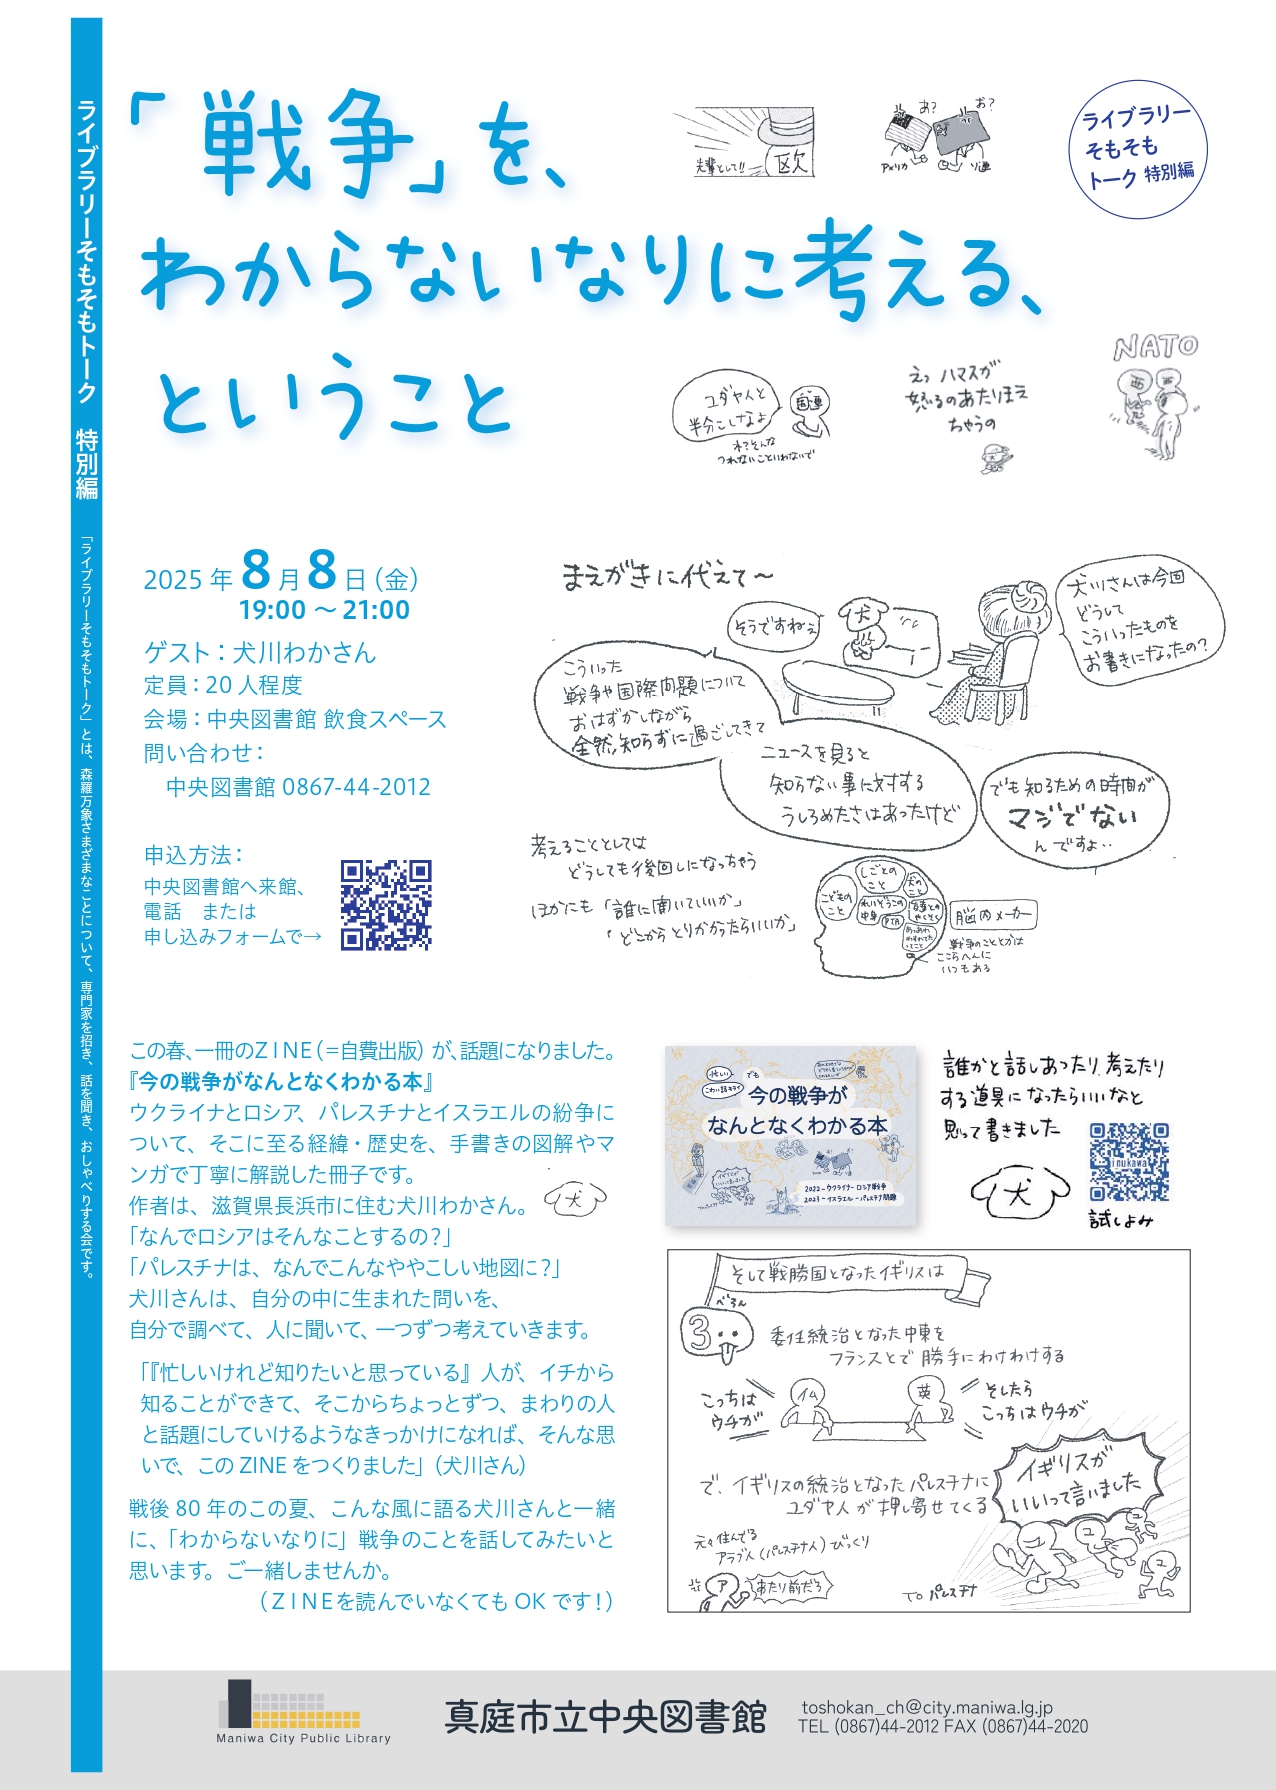 ライブラリーそもそもトーク 特別編
「ライブラリーそもそもトーク」とは、森羅万象さまざまなことについて、専門家を招き、話を聞き、おしゃべりする会です。
「戦争」を、
わからないなりに考える、
ということ
先輩として!!
欧
あ?
お?
アメリカ
ソ連
ライブラリー
そもそも
トーク 特別編
ユダヤ人と
半分こしなよ
国連
え?そんな
つれないこといわないで
えっ ハマスが
怒るのあたりまえ
ちゃうの
NATO
西
西
2025年8月8日(金)
19:00 〜 21:00
ゲスト:犬川わかさん
定員:20人程度
会場:中央図書館 飲食スペース
問い合わせ:
中央図書館 0867-44-2012
申込方法:
中央図書館へ来館、
電話 または
申し込みフォームで→
まえがきに代えて〜
犬川さんは今回
どうして
こういったものを
お書きになったの?
そうですねぇ
犬
こういった
戦争や国際問題について
おはずかしながら
全然知らずに過ごしてきて
ニュースを見ると
知らない事に対する
うしろめたさはあったけど
でも知るための時間が
マジでない
んですよ..
考えることとしては
どうしても後回しになっちゃう
ほかにも「誰に聞いていいか」
「どこからとりかかったらいいか」
しごとの
こと
こどもの
こと
犬の
こと
れいぞうこの
中身
PTA
脳内メーカー
戦争のこととかは
ここらへんに
いつもある
この春、一冊のZINE(=自費出版)が、話題になりました。
『今の戦争がなんとなくわかる本』
ウクライナとロシア、パレスチナとイスラエルの紛争に
ついて、そこに至る経緯・歴史を、手書きの図解やマ
ンガで丁寧に解説した冊子です。
作者は、滋賀県長浜市に住む犬川わかさん。
犬
「なんでロシアはそんなことするの?」
「パレスチナは、なんでこんなややこしい地図に?」
犬川さんは、自分の中に生まれた問いを、
自分で調べて、人に聞いて、一つずつ考えていきます。
「『忙しいけれど知りたいと思っている』人が、イチから
知ることができて、そこからちょっとずつ、まわりの人
と話題にしていけるようなきっかけになれば、そんな思
いで、このZINEをつくりました」(犬川さん)
戦後80年のこの夏、こんな風に語る犬川さんと一緒
に、「わからないなりに」戦争のことを話してみたいと
思います。ご一緒しませんか。
(ZINEを読んでいなくてもOKです!)
忙しい
でも
こわい話キライ
今の戦争が
なんとなくわかる本
2022〜ウクライナ-ロシア戦争
2023〜イスラエル-パレスチナ問題
誰かと話しあったり、考えたり
する道具になったらいいなと
思って書きました
犬
inukawa
試しよみ
そして戦勝国となったイギリスは
べろん
3
委任統治となった中東を
フランスとで勝手にわけわけする
こっちは
ウチが
仏
英
そしたら
こっちはウチが
で、イギリスの統治となったパレスチナに
ユダヤ人が押し寄せてくる
イギリスが
いいって言いました
元々住んでる
アラブ人(パレスチナ人)びっくり
ア
あたり前だろ
To パレスチナ
ユ
ユ
ユ
ユ
Maniwa City Public Library
真庭市立中央図書館
toshokan_ch@city.maniwa.lg.jp
TEL (0867)44-2012 FAX (0867)44-2020